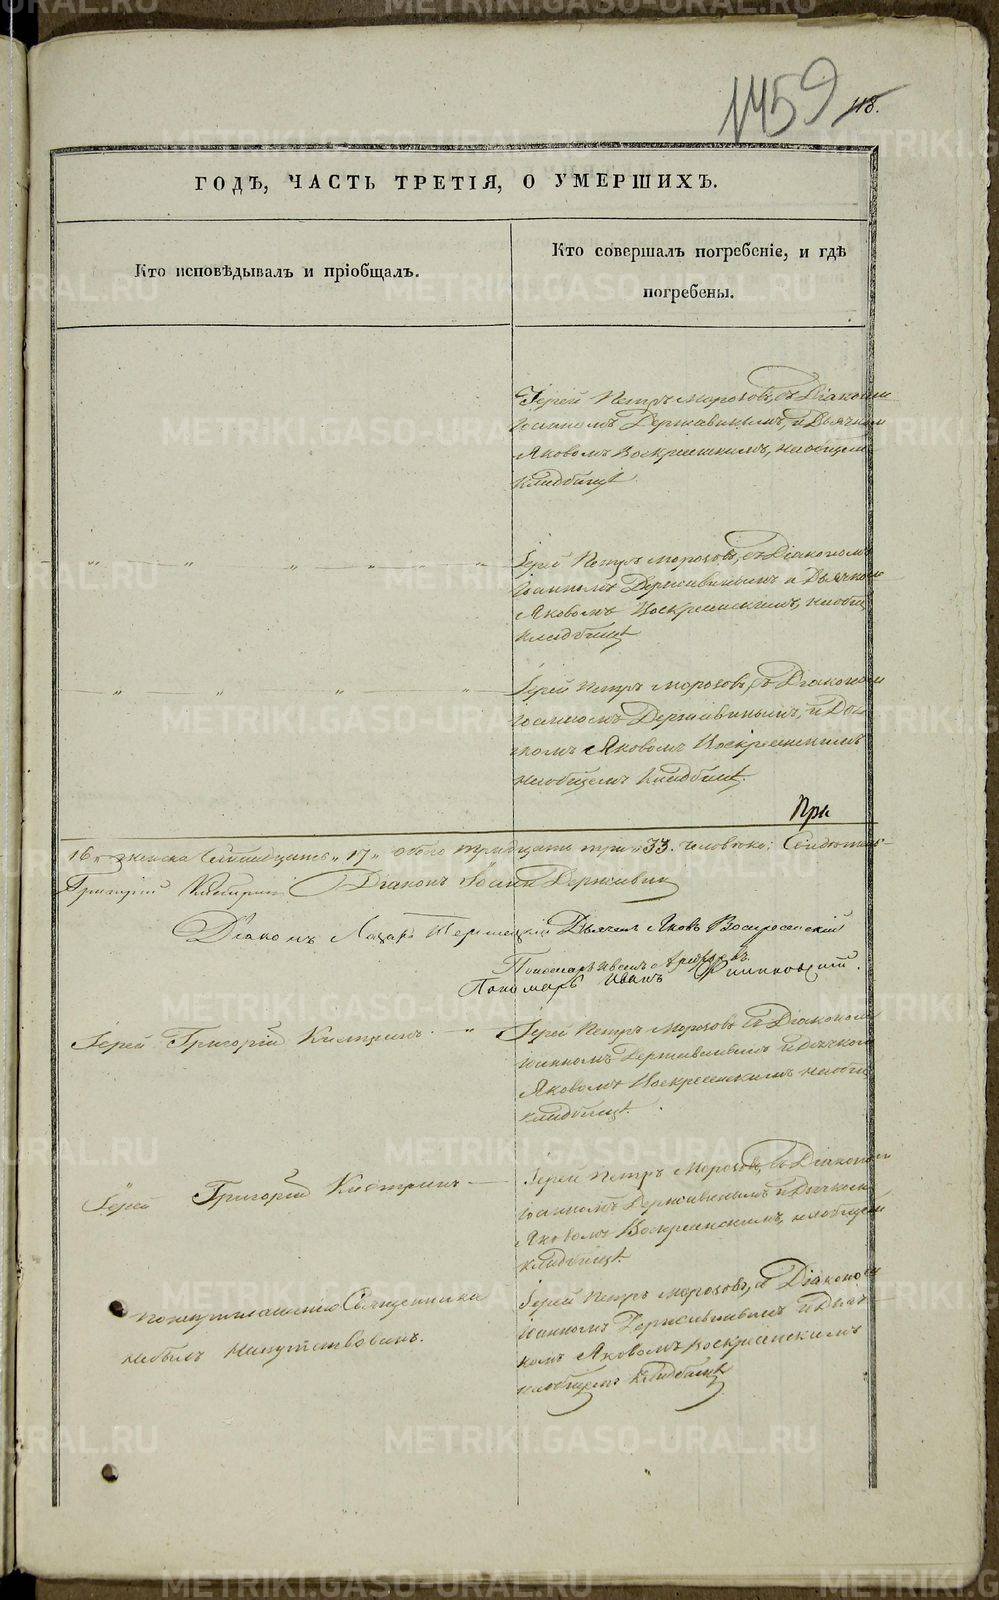 1459 118.
ГОДЪ, ЧАСТЬ ТРЕТІЯ, О УМЕРШИХЪ.
Кто исповѣдывалъ и пріобщалъ.
Кто совершалъ погребеніе, и гдѣ
погребены.
Іерей Петръ Морозовъ, съ Діакономъ
Іоанномъ Державинымъ, и Дьячком
Яковомъ Воскресенскимъ, на общем
кладбищѣ
" " " " " " Іерей Петръ Морозовъ, съ Діакономъ
Іоанномъ Державинымъ и Дьячком
Яковомъ Воскресенскимъ, на общ
кладбищѣ
" " " " Іерей Петръ Морозовъ, съ Діакономъ
Іоанномъ Державинымъ, и Дья
чкомъ Яковомъ Воскресенскимъ
на общемъ кладбищѣ.
При
16 " женска семнадцать " 17 " обоего тридцати три " 33. человѣка;
Григорій Кистринъ Діаконъ Іоаннъ Державин
Діаконъ Лазарь Дьячекъ Яковъ Воскресенскій
Пономарь Иванъ
Пономарь Иванъ
Іерей Григорій Кистринъ " Іерей Петръ Морозовъ съ Діакономъ
Іоанномъ Державинымъ и Дьячкомъ
Яковомъ Воскресенскимъ на общ
кладбищѣ.
Іерей Григорій Кистринъ Іерей Петръ Морозовъ, съ Діакономъ
Іоанномъ Державинымъ и Дьячком
Яковомъ Воскресенскимъ, на общем
кладбищѣ.
По неприглашенію Священника Іерей Петръ Морозовъ, съ Діакономъ
небылъ напутствованъ. Іоанномъ Державинымъ и Дьяч
комъ Яковомъ Воскресенскимъ
на общемъ кладбищѣ
METRIKI.GASO-URAL.RU